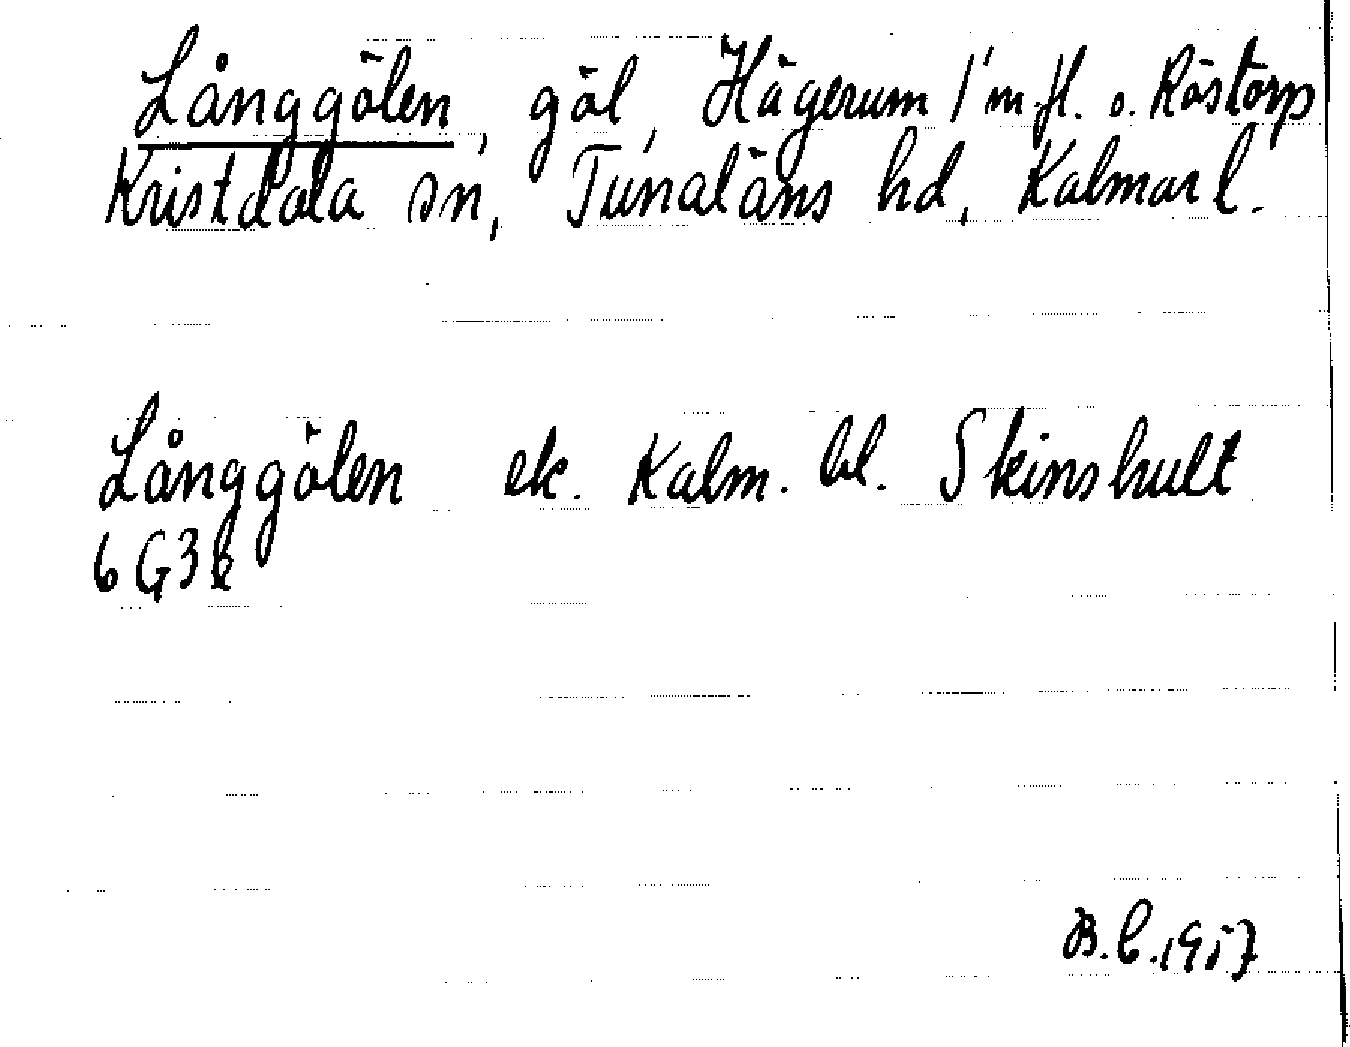 Långgölen, göl, Hägerum 1 m.fl. o. Röstorp
Kristdala sn, Tunaläns hd, Kalmar l.
Långgölen ek. Kalm. bl. Skinshult
6 G3e
B.E. 1957